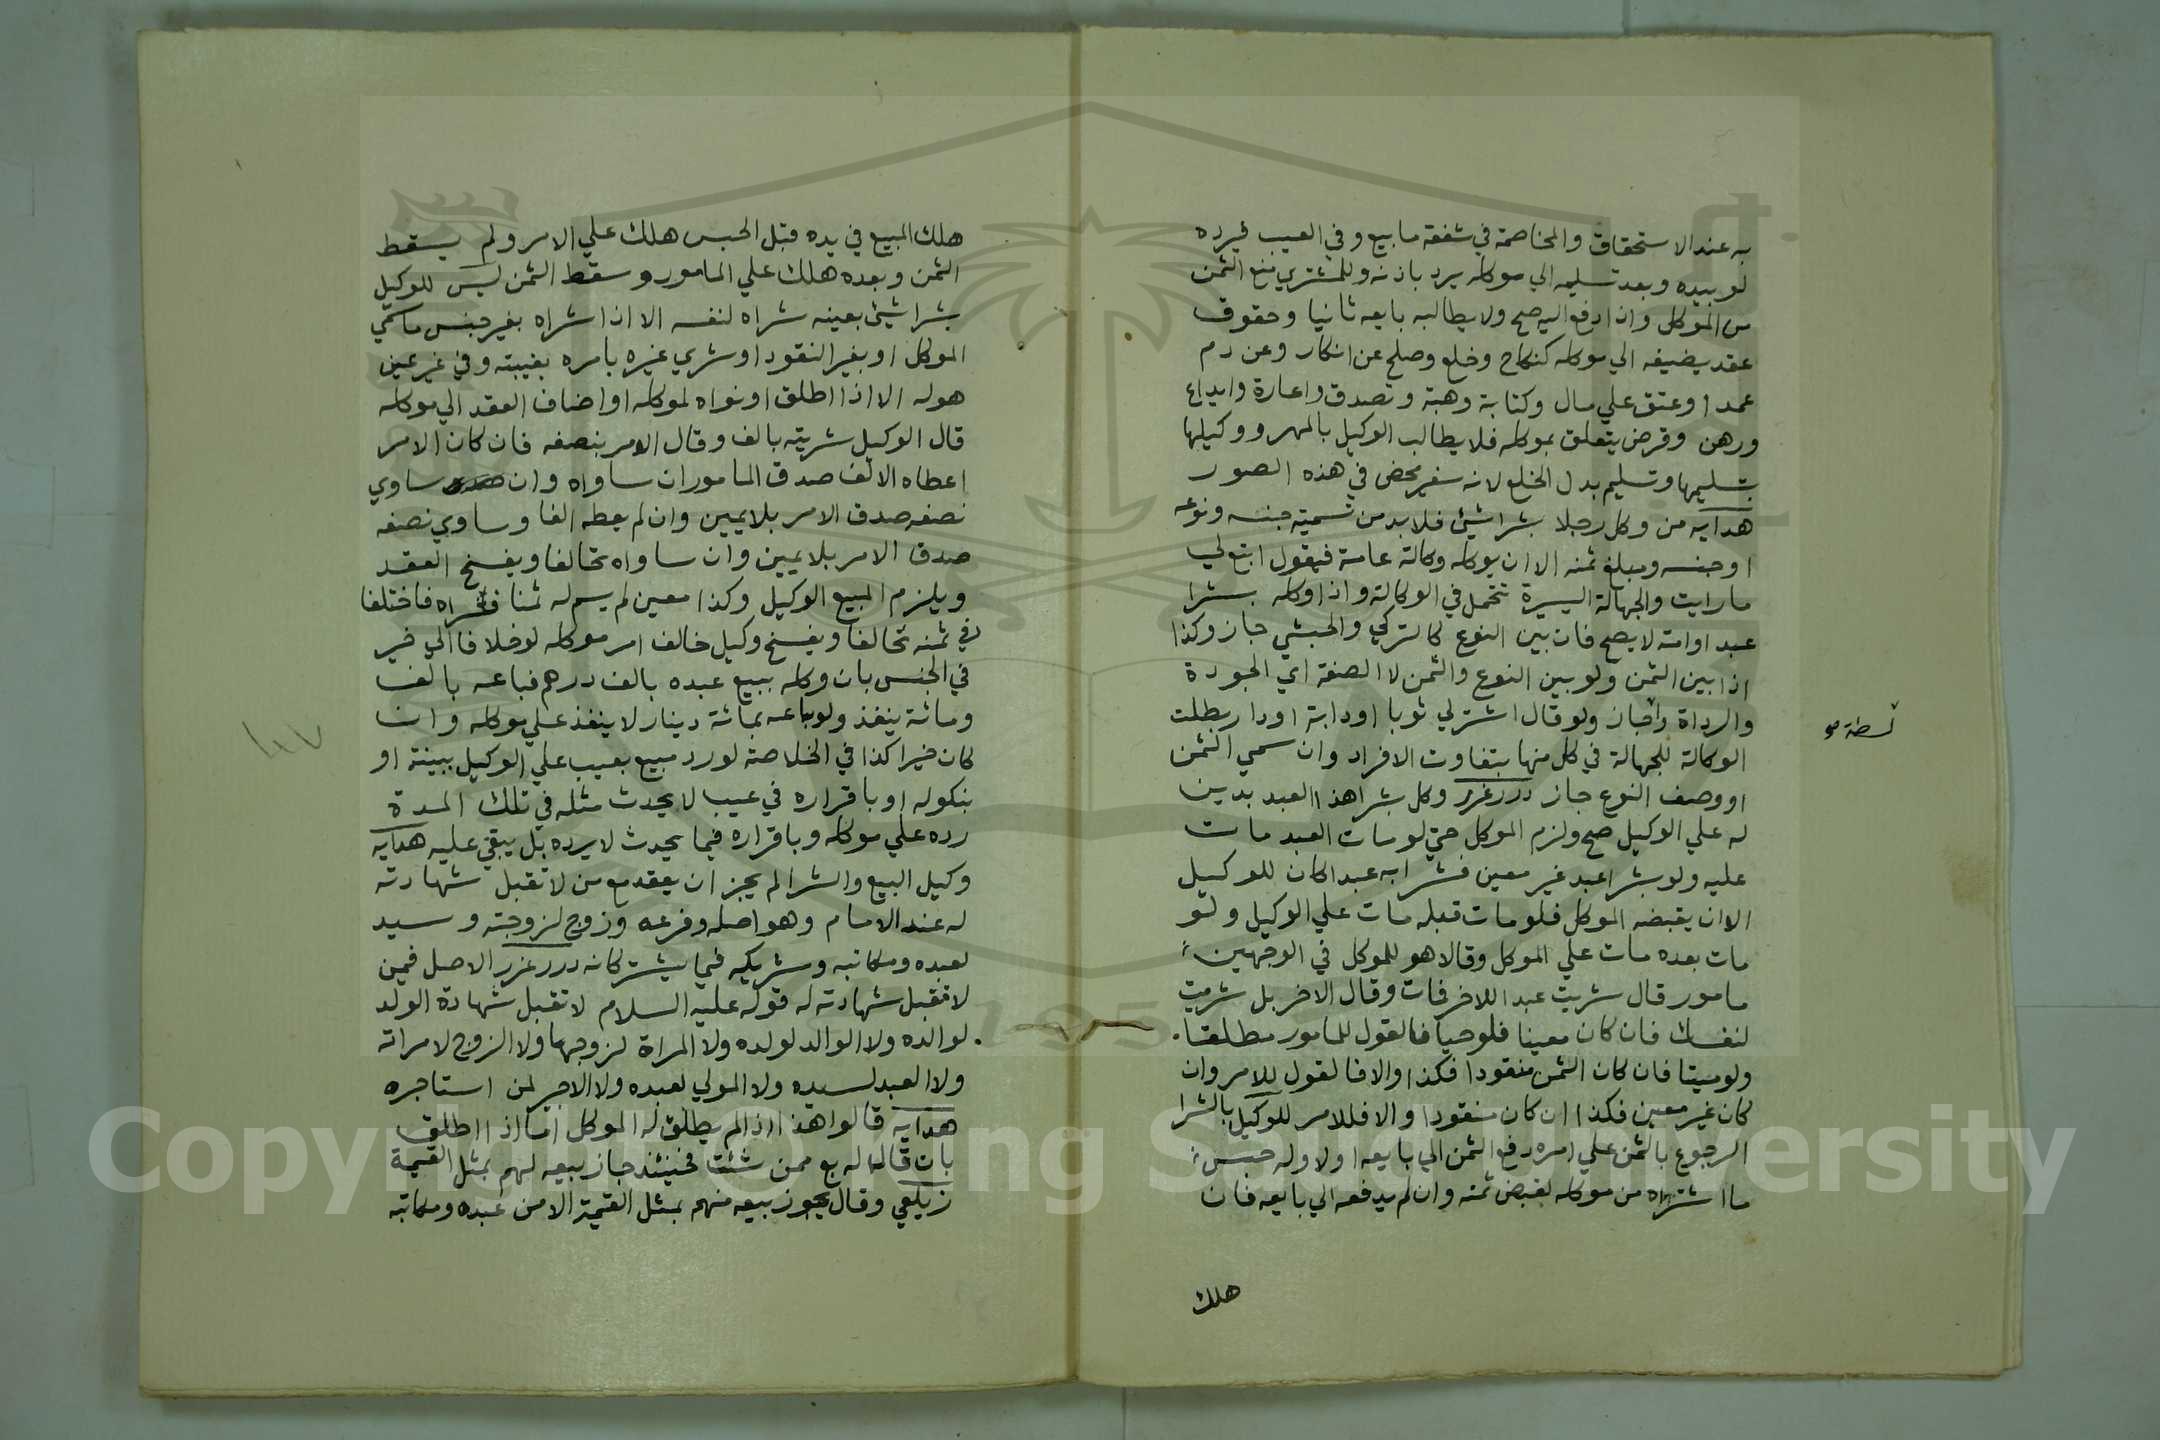 به عند الاستحقاق والمخاصمة في شفعة ما بيع وفي العيب فيرده
لو بيده وبعد تسليمه الي موكله يرد باذنه وللمشتري منع الثمن
من الموكل وان دفع اليه صح ولا يطالبه بايعه ثانيا وحقوق
عقد يضيفه الي موكله كنكاح وخلع وصلح عن انكار وعن دم
عمد او عتق علي مال وكتابة وهبة وتصدق واعارة وايداع
ورهن وقرض يتعلق بموكله فلا يطالب الوكيل بالمهر ووكيلها
بتسليمها وتسليم بدل الخلع لانه سفير محض في هذه الصور
هدايه من وكل رجلا بشرا شئ فلا بد من تسمية جنسه ونوعه
او جنسه ومبلغ ثمنه الا ان يوكله وكالة عامة فيقول ابتع لي
ما رايت والجهالة اليسيرة تتحمل في الوكالة واذا وكله بشرا
عبد او امة لا يصح فان بين النوع كالتركي والحبشي جاز وكذا
اذا بين الثمن ولو بين النوع والثمن لا الصفة اي الجودة
والرداة جاز ولو قال اشتر لي ثوبا او دابة او دار بطلت
الوكالة للجهالة في كل منها بتفاوت الافراد وان سمي الثمن
او وصف النوع جاز درر غرر وكل بشرا هذا العبد بدين
له علي الوكيل صح ولزم الموكل حتي لو مات العبد مات
عليه ولو بشرا عبد غير معين فشرا به عبدا كان للوكيل
الا ان يقبضه الموكل فلو مات قبله مات علي الوكيل ولو
مات بعده مات علي الموكل وقالا هو للموكل في الوجهين
مامور قال شريت عبدا للاخر فمات وقال الاخر بل شريت
لنفسك فان كان معينا فلو حيا فالقول للمامور مطلقا
ولو ميتا فان كان الثمن منقودا فكذا والا فالقول للامر وان
كان غير معين فكذا ان كان منقودا والا فللامر للوكيل بالشرا
الرجوع بالثمن علي امره دفع الثمن الي بايعه اولا وله حبس
ما اشتراه من موكله لقبض ثمنه وان لم يدفعه الي بايعه فان
هلك
هلك المبيع في يده قبل الحبس هلك علي الامر ولم يسقط
الثمن وبعده هلك علي المامور وسقط الثمن ليس للوكيل
بشرا شئ بعينه شراه لنفسه الا اذا شراه بغير جنس ما سمي
الموكل او بغير النقود او شري غيره بامره بغيبته وفي غير عين
هو له الا اذا اطلق او نواه لموكله او اضاف العقد الي موكله
قال الوكيل شريته بالف وقال الامر بنصفه فان كان الامر
اعطاه الالف صدق المامور ان ساواه وان ساوي
نصفه صدق الامر بلا يمين وان لم يعطه الفا وساوي نصفه
صدق الامر بلا يمين وان ساواه تحالفا ويفسخ العقد
ويلزم المبيع الوكيل وكذا معين لم يسم له ثمنا فشراه فاختلفا
في ثمنه تحالفا ويفسخ وكيل خالف امر موكله لو خلافا الي خير
في الجنس بان وكله ببيع عبده بالف درهم فباعه بالف
ومائة ينفذ ولو باعه بمائة دينار لا ينفذ علي موكله وان
كان خيرا كذا في الخلاصة لو رد مبيع بعيب علي الوكيل ببينة او
بنكوله او باقراره في عيب لا يحدث مثله في تلك المدة
رده علي موكله وباقراره فيما يحدث لا يرده بل يبقي عليه هدايه
وكيل البيع والشرا لم يجز ان يعقد مع من لا تقبل شهادته
له عند الامام وهو اصله وفرعه وزوج لزوجته وسيد
لعبده ومكاتبه وشريكه فيما يشتركانه درر غرر الاصل فمن
لا تقبل شهادته له قوله عليه السلام لا تقبل شهادة الولد
لوالده ولا الوالد لولده ولا المراة لزوجها ولا الزوج لامراته
ولا العبد لسيده ولا المولي لعبده ولا الاجير لمن استاجره
هدايه قالوا هذا اذا لم يطلق له الموكل اما اذا اطلق
بان قال له بع ممن شئت فحينئذ جاز بيعه لهم بمثل القيمة
زيلعي وقال يجوز بيعه منهم بمثل القيمة الا من عبده ومكاتبه
Copyright © King Saud University